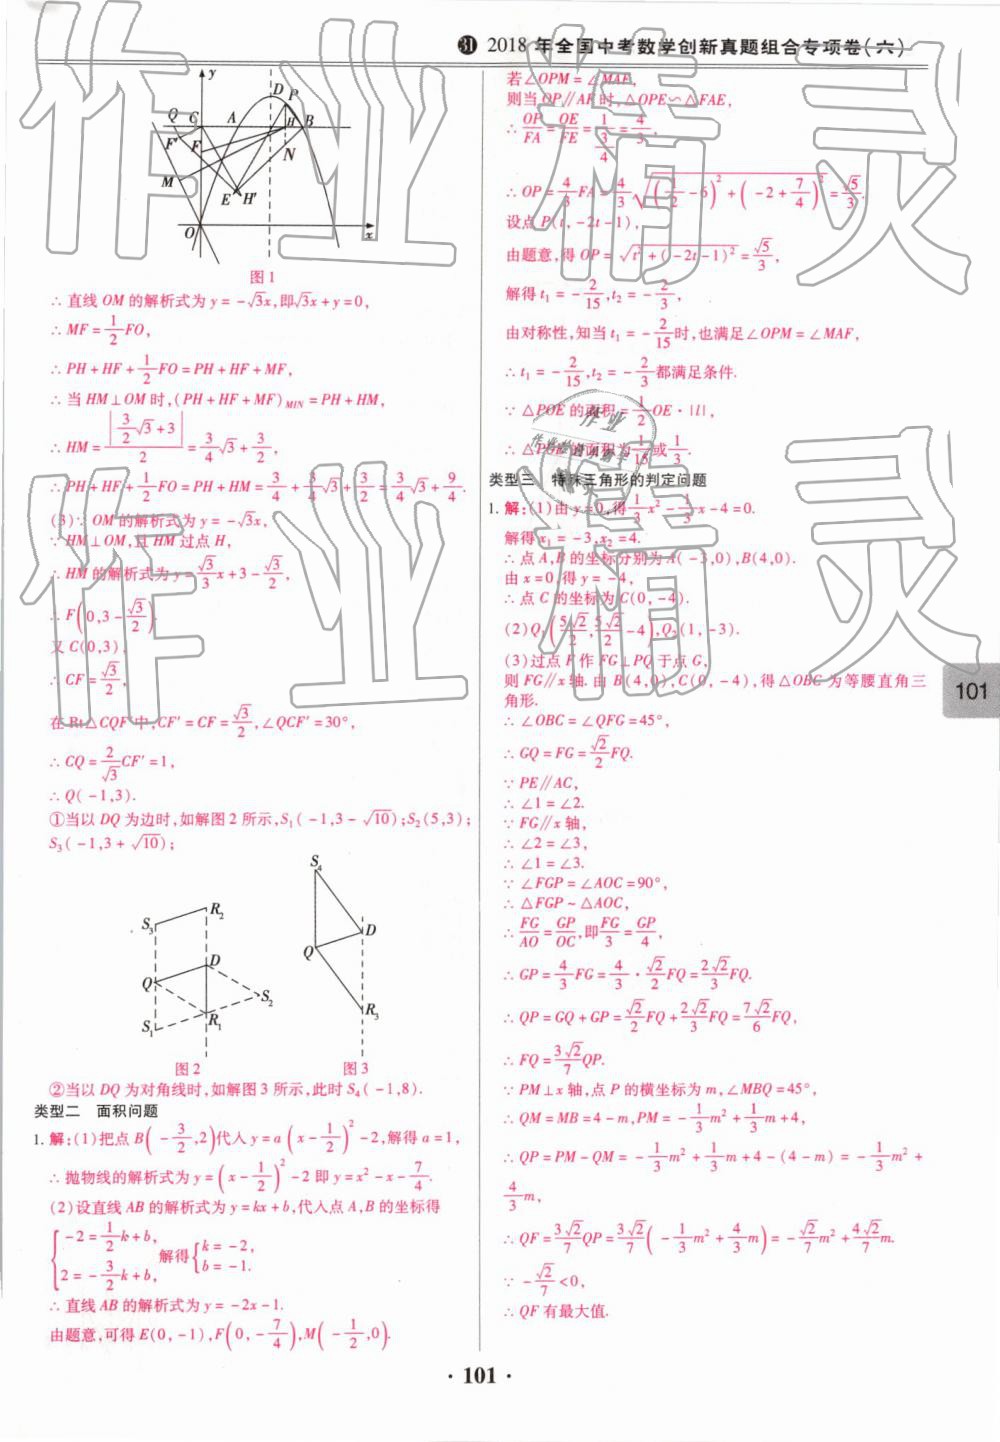 ㉛ 2018年全国中考数学创新真题组合专项卷(六)
y
D P
Q C A H B
F' F
M N
E H'
O x
图1
∴直线OM的解析式为y=-√3x,即√3x+y=0,
∴MF=1/2FO,
∴PH+HF+1/2FO=PH+HF+MF,
∴当HM⊥OM时,(PH+HF+MF)MIN=PH+HM,
∴HM=|3/2√3+3|/2=3/4√3+3/2,
∴PH+HF+1/2FO=PH+HM=3/4+3/4√3+3/2=3/4√3+9/4.
(3)∵OM的解析式为y=-√3x,
∵HM⊥OM,且HM过点H,
∴HM的解析式为y=√3/3x+3-√3/2,
∴F(0,3-√3/2).
又C(0,3),
∴CF=√3/2,
在Rt△CQF'中,CF'=CF=√3/2,∠QCF'=30°,
∴CQ=2/√3CF'=1,
∴Q(-1,3).
①当以DQ为边时,如解图2所示,S₁(-1,3-√10);S₂(5,3);
S₃(-1,3+√10);
S₃ R₂
Q D
S₂
S₁ R₁
图2
S₄
Q D
R₃
图3
②当以DQ为对角线时,如解图3所示,此时S₄(-1,8).
类型二 面积问题
1.解:(1)把点B(-3/2,2)代入y=a(x-1/2)²-2,解得a=1,
∴抛物线的解析式为y=(x-1/2)²-2即y=x²-x-7/4.
(2)设直线AB的解析式为y=kx+b,代入点A,B的坐标得
{-2=1/2k+b,
2=-3/2k+b,
解得{k=-2,
b=-1.
∴直线AB的解析式为y=-2x-1.
由题意,可得E(0,-1),F(0,-7/4),M(-1/2,0).
若∠OPM=∠MAF,
则当OP∥AF时,△OPE∽△FAE,
∴OP/FA=OE/FE=1/(3/4)=4/3,
∴OP=4/3FA=4/3√((1/2-6)²+(-2+7/4)²)=√5/3.
设点P(t,-2t-1),
由题意,得OP=√(t²+(-2t-1)²)=√5/3,
解得t₁=-2/15,t₂=-2/3,
由对称性,知当t₁=-2/15时,也满足∠OPM=∠MAF,
∴t₁=-2/15,t₂=-2/3都满足条件.
∵△POE的面积=1/2OE·|l|,
∴△POE的面积为1/15或1/3.
类型三 特殊三角形的判定问题
1.解:(1)由y=0,得1/3x²-1/3x-4=0.
解得x₁=-3,x₂=4.
∴点A,B的坐标分别为A(-3,0),B(4,0).
由x=0,得y=-4,
∴点C的坐标为C(0,-4).
(2)Q₁(5√2/2,5√2/2-4),Q₂(1,-3).
(3)过点F作FG⊥PQ于点G,
则FG∥x轴.由B(4,0),C(0,-4),得△OBC为等腰直角三
角形.
∴∠OBC=∠QFG=45°,
∴GQ=FG=√2/2FQ.
∵PE∥AC,
∴∠1=∠2.
∵FG∥x轴,
∴∠2=∠3,
∴∠1=∠3.
∵∠FGP=∠AOC=90°,
∴△FGP~△AOC,
∴FG/AO=GP/OC,即FG/3=GP/4,
∴GP=4/3FG=4/3·√2/2FQ=2√2/3FQ.
∴QP=GQ+GP=√2/2FQ+2√2/3FQ=7√2/6FQ,
∴FQ=3√2/7QP.
∵PM⊥x轴,点P的横坐标为m,∠MBQ=45°,
∴QM=MB=4-m,PM=-1/3m²+1/3m+4,
∴QP=PM-QM=-1/3m²+1/3m+4-(4-m)=-1/3m²+
4/3m,
∴QF=3√2/7QP=3√2/7(-1/3m²+4/3m)=-√2/7m²+4√2/7m.
∵-√2/7<0,
∴QF有最大值.
101
·101·
作业精灵
作业精灵